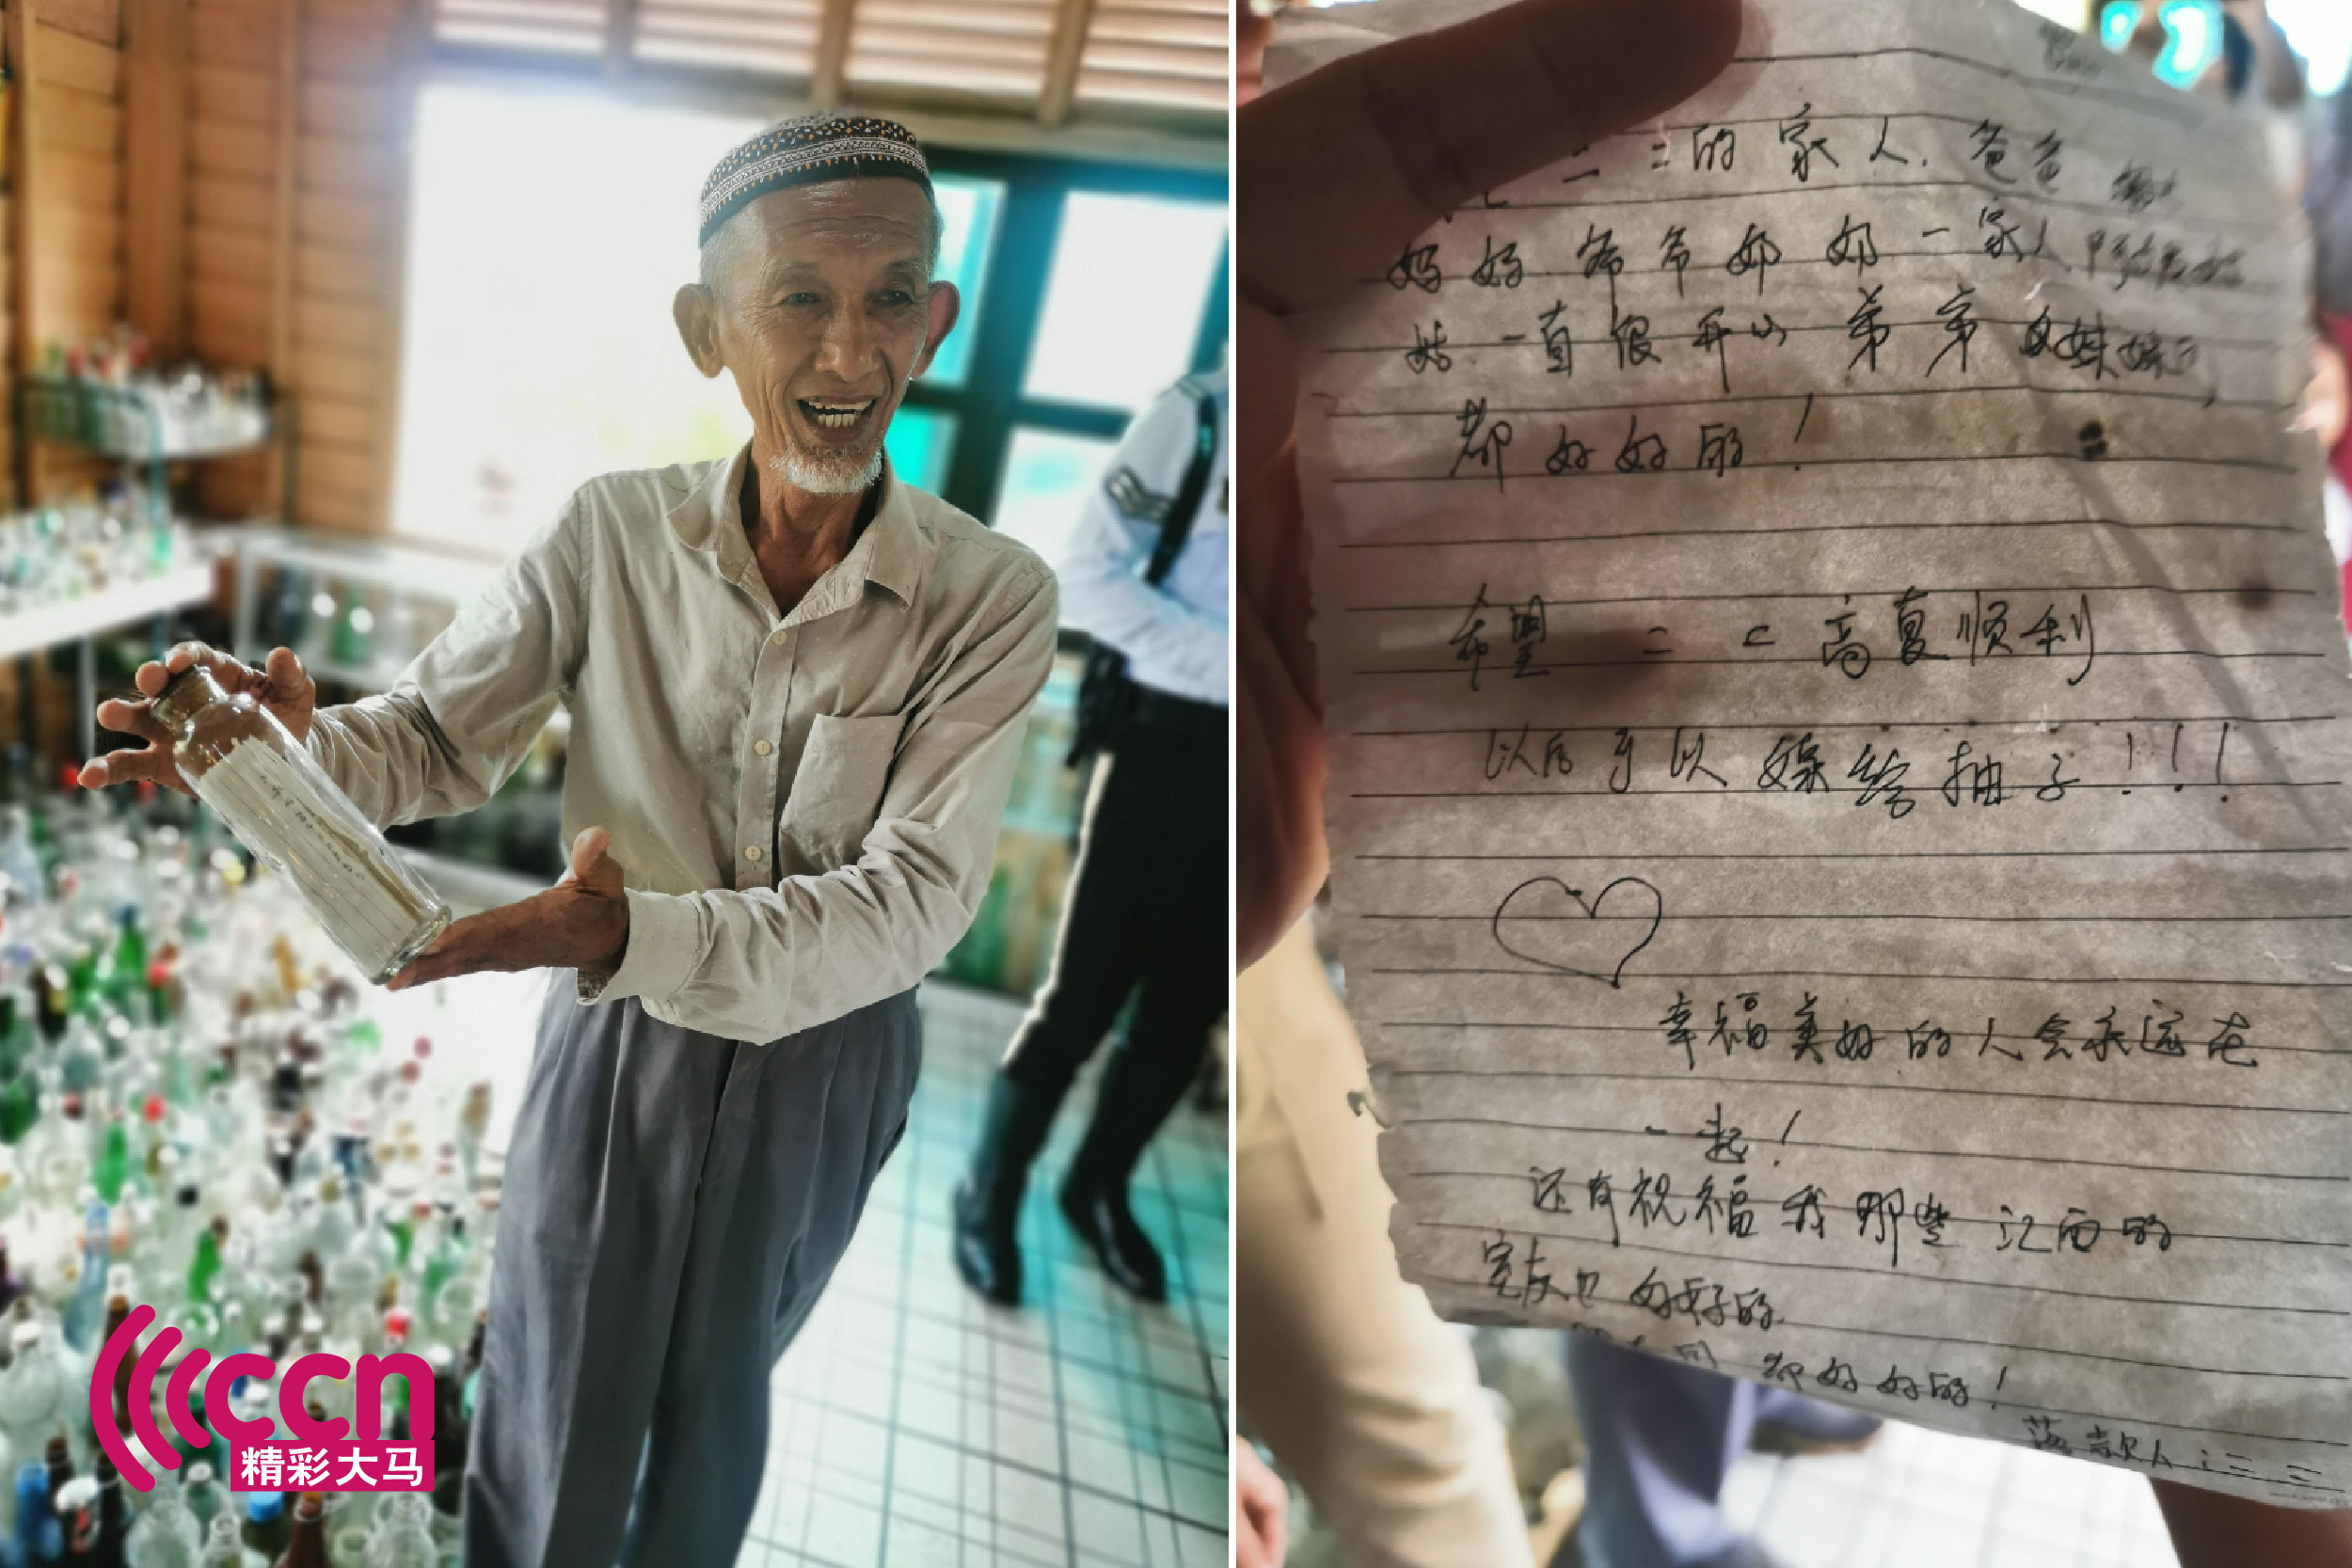 ccn
精彩大马
二二的家人.爸爸
妈妈爷爷奶奶一家人
姑.一直很开心弟弟妹妹
都好好的!
希望二二高复顺利
以后可以嫁给柚子!!!
幸福美好的人会永远在
一起!
还有祝福我那些江西的
室友也好好的
都好好的!
落款人:二二